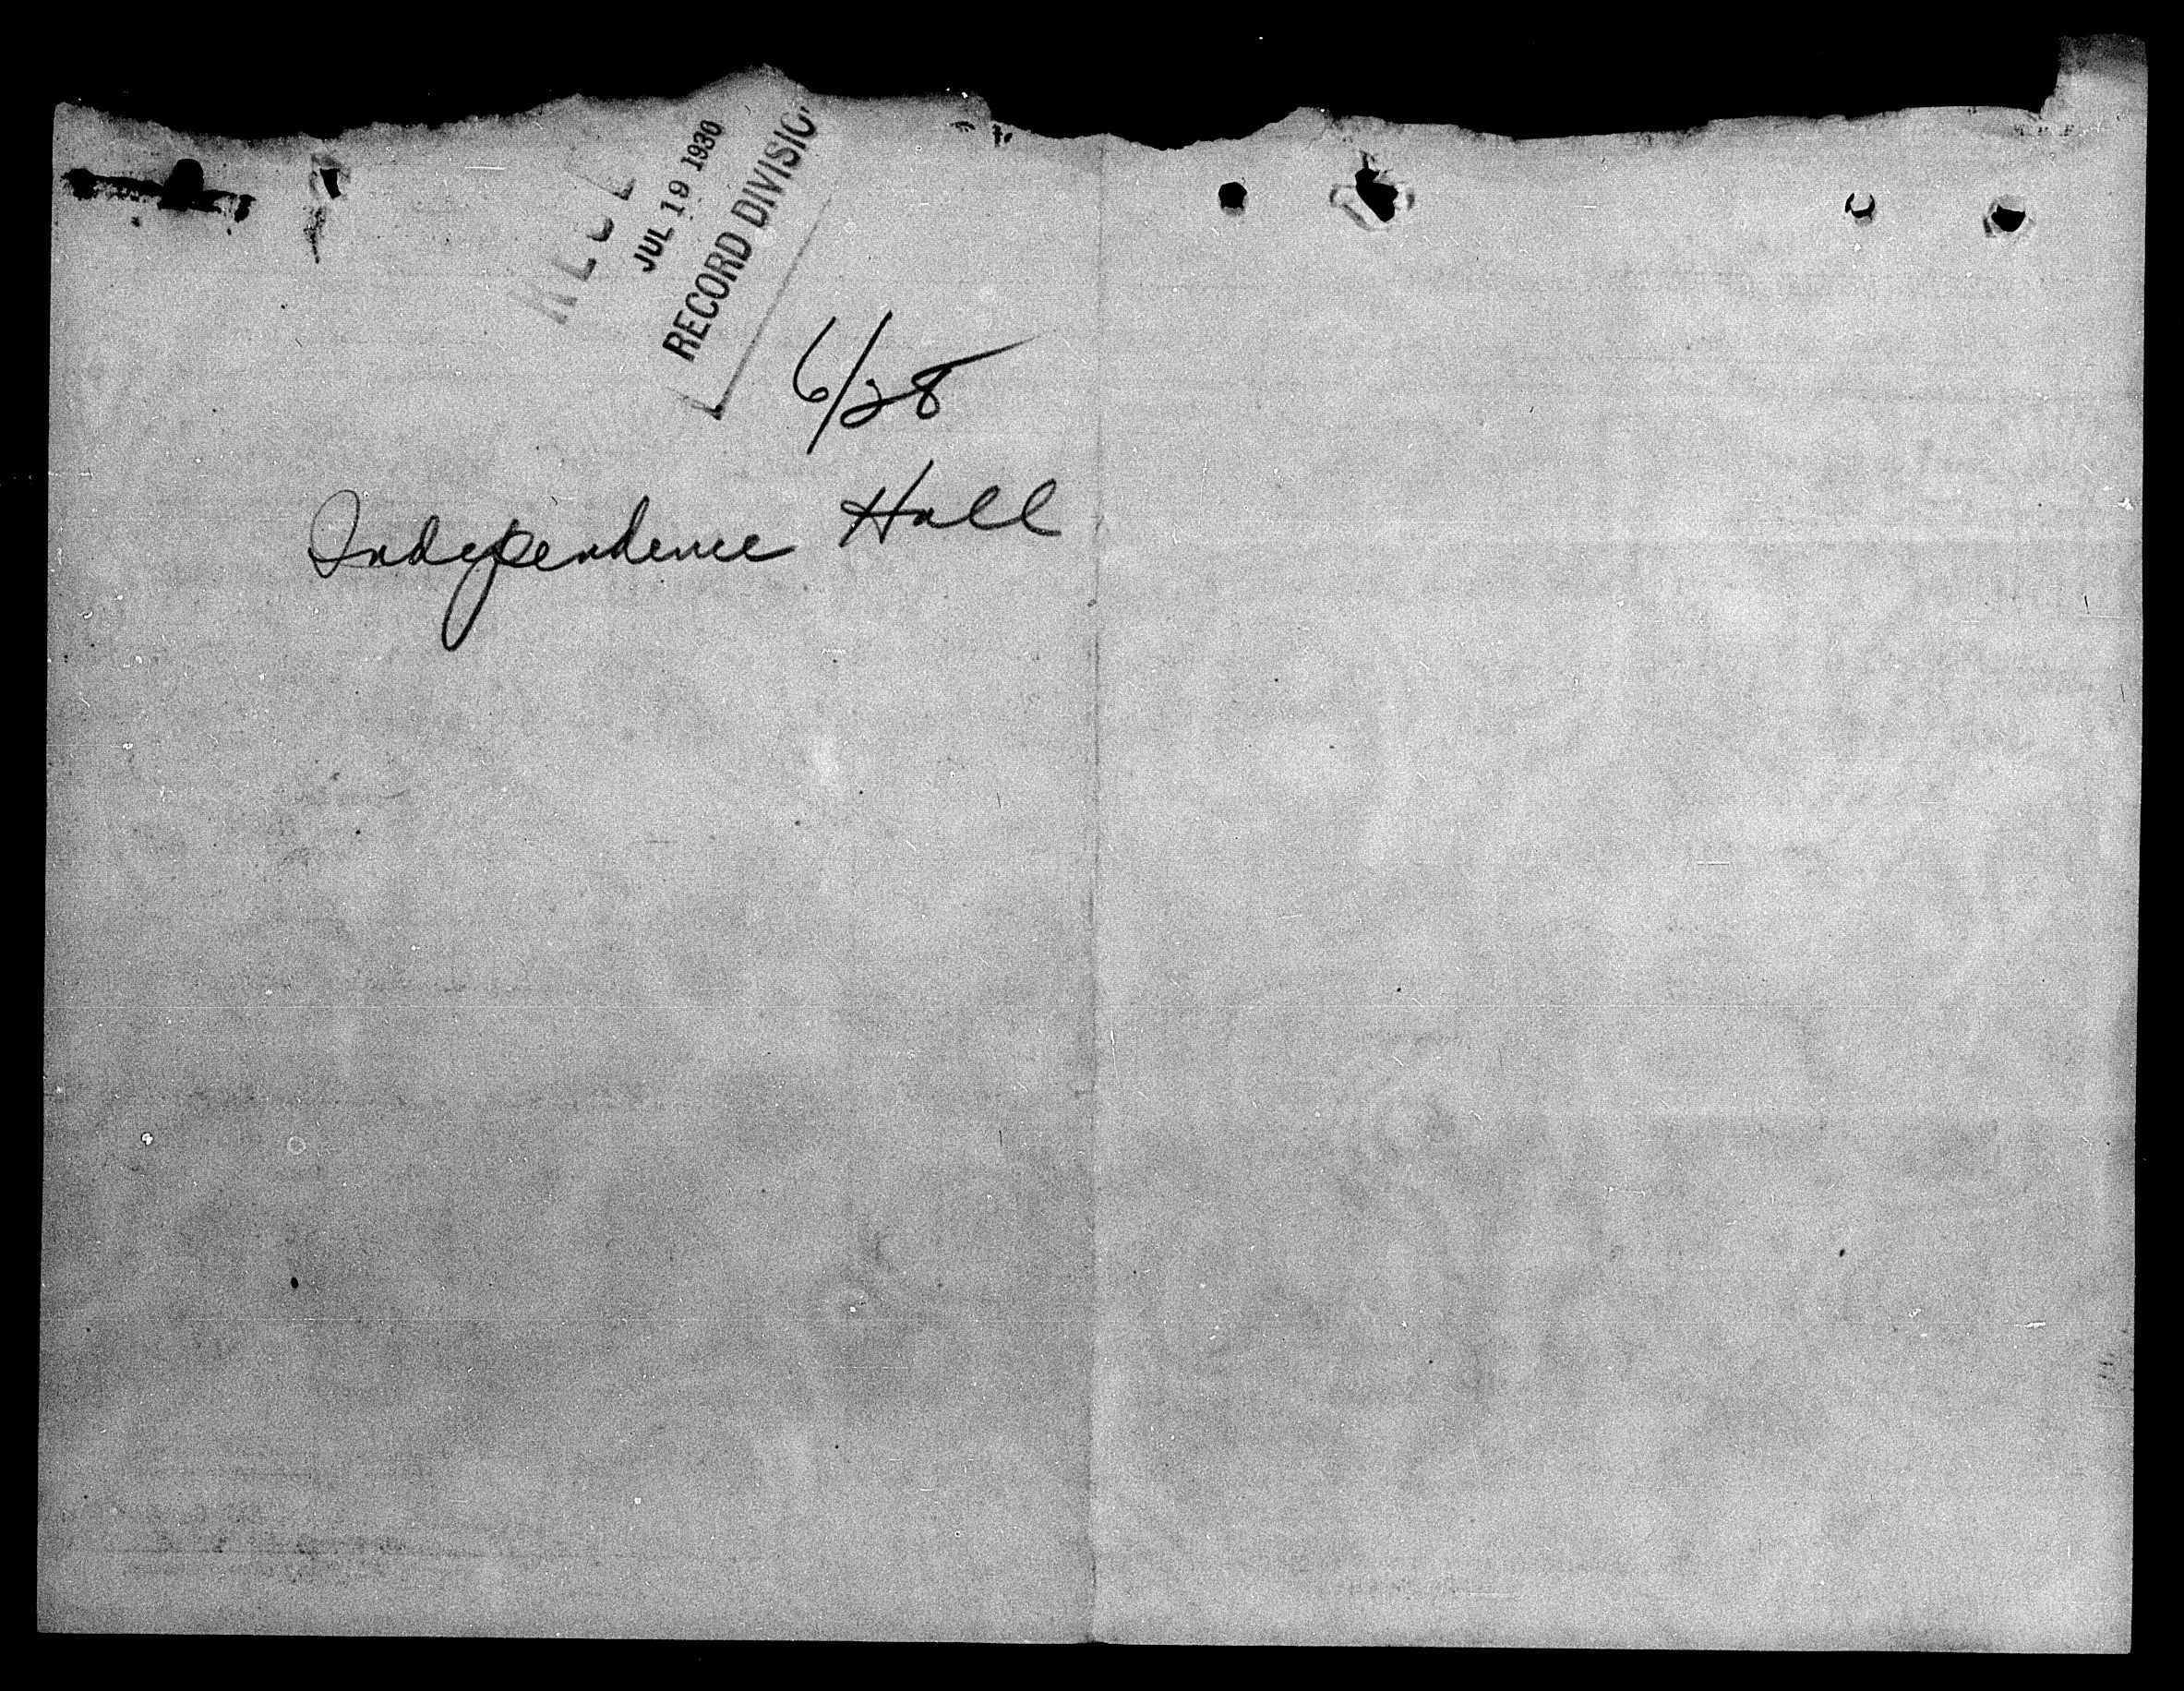 JUL 19 1930
RECORD DIVISIO
6/28
Independence Hall